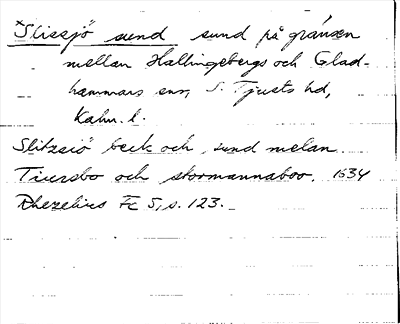 *Slissjö sund sund på gränsen
mellan Hallingebergs och Glad-
hammars snr, S. Tjusts hd,
Kalm. l.
Slitzsiö beck och sund melan
Tiursbo och stormannaboo. 1634
Rhezelius Fc 5, s. 123.